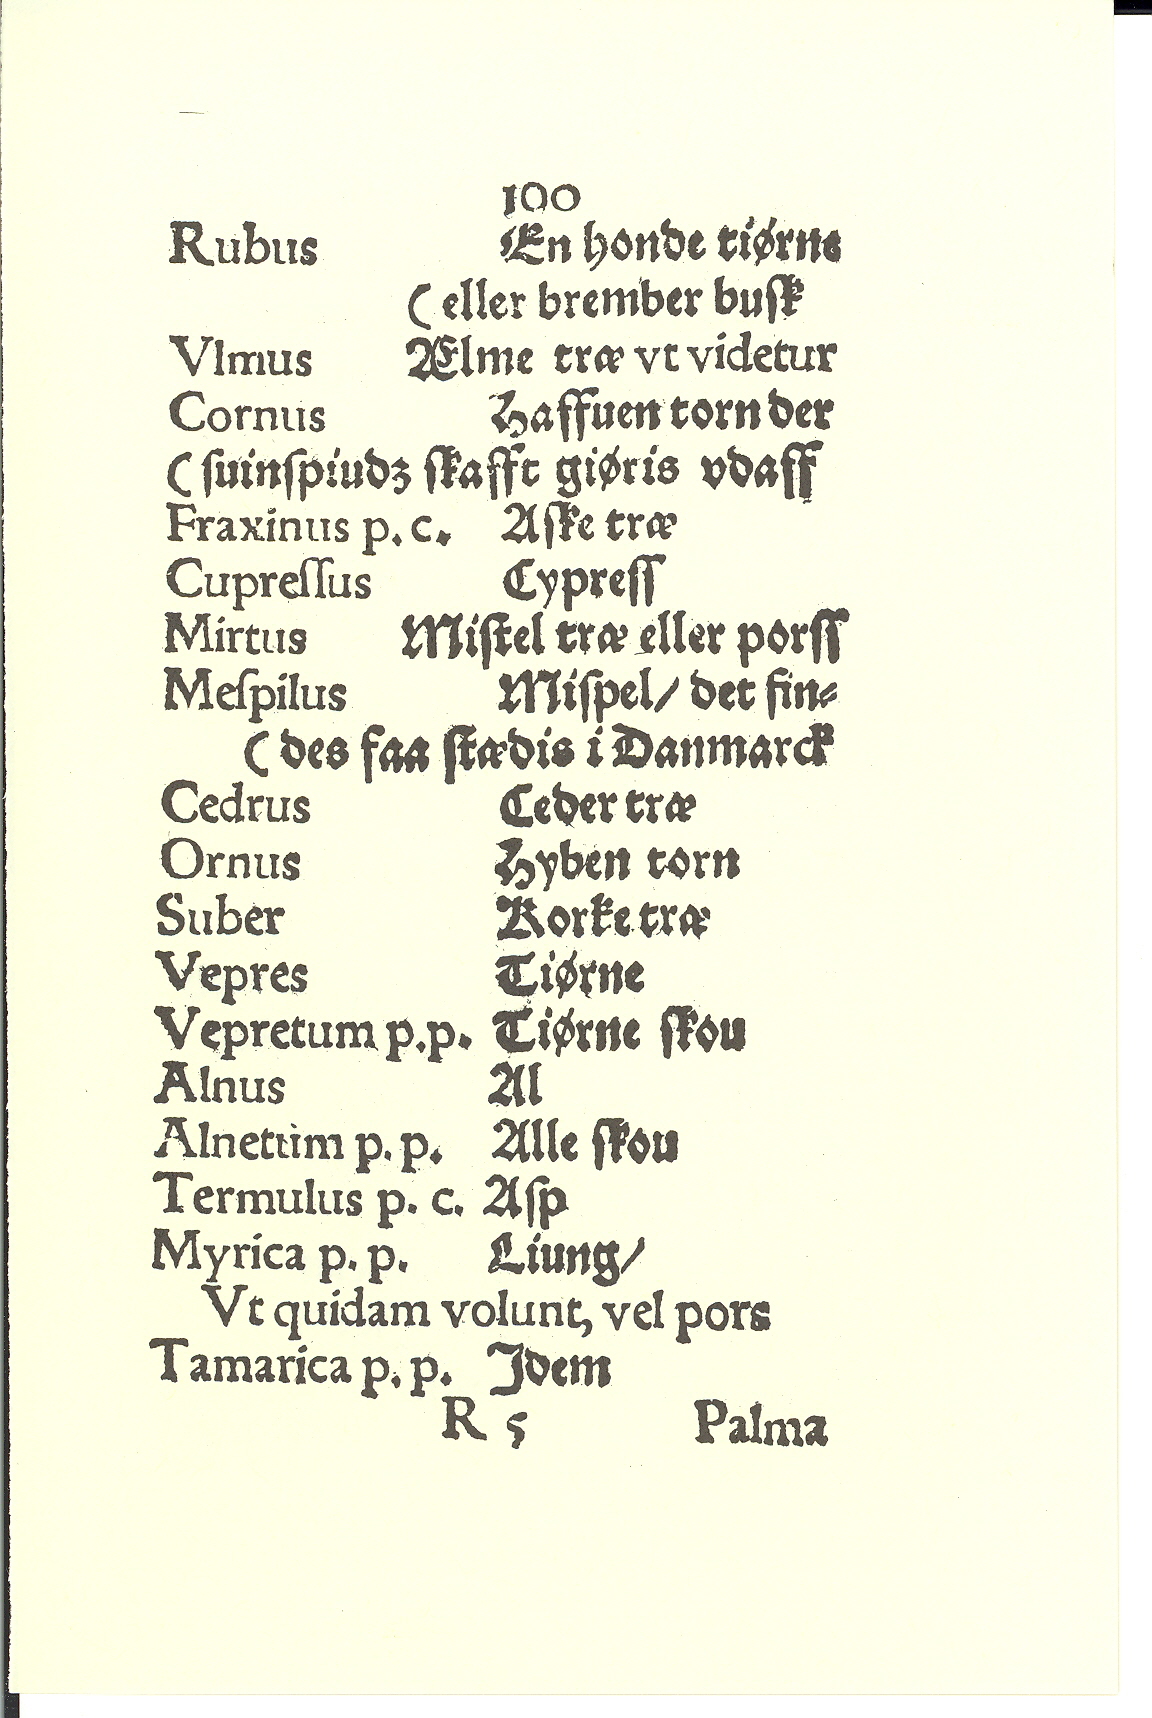 100
Rubus En honde tiørne
( eller brember busk
Vlmus Ælme træ vt videtur
Cornus Haffuen torn der
( suinspiudz skafft giøris vdaff
Fraxinus p. c. Aske træ
Cupreſſus Cypreſſ
Mirtus Miſtel træ eller porſſ
Meſpilus Miſpel/ det fin⸗
( des faa ſtædis i Danmarck
Cedrus Ceder træ
Ornus Hyben torn
Suber Korke træ
Vepres Tiørne
Vepretum p.p. Tiørne ſkou
Alnus Al
Alnetum p. p. Alle ſkou
Termulus p. c. Aſp
Myrica p. p. Liung/
Vt quidam volunt, vel pors
Tamarica p. p. Idem
R 5 Palma